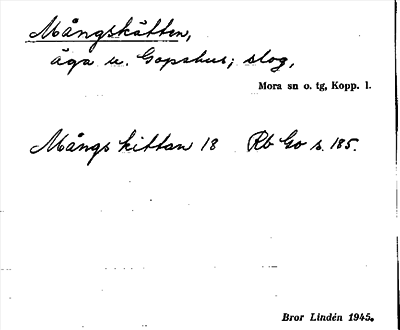 Mångskåttan,
äga u. Gopshus; slog,
Mora sn o. tg, Kopp. l.
Mångs kittan 18 Rb Go s. 185.
Bror Lindén 1945.